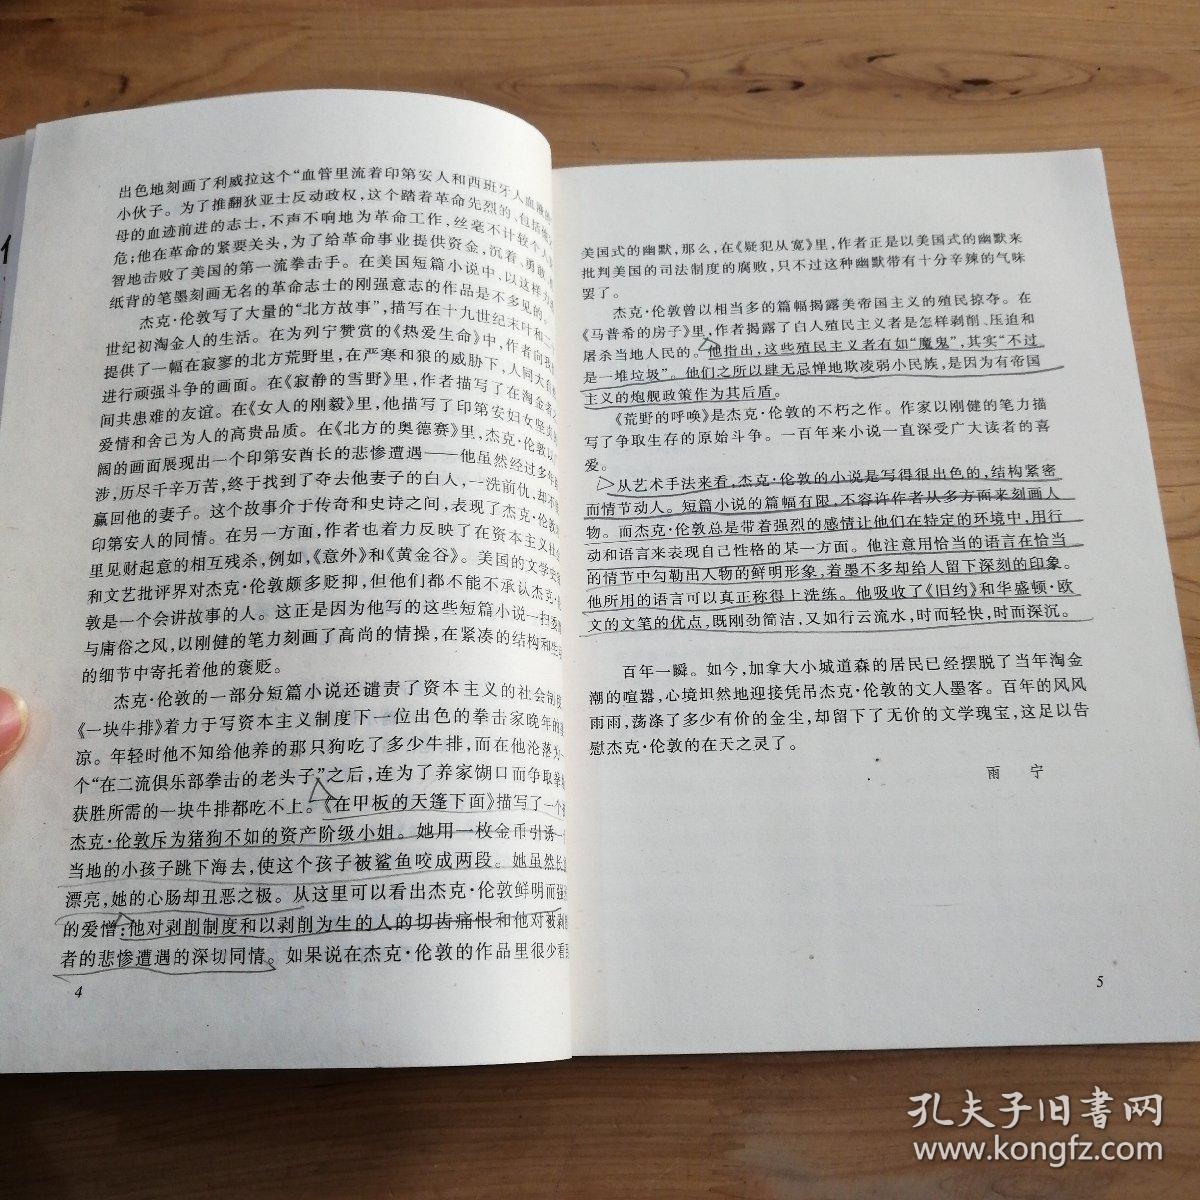 出色地刻画了利威拉这个“血管里流着印第安人和西班牙人血液的
小伙子。为了推翻狄亚士反动政权,这个踏着革命先烈的、包括他父
母的血迹前进的志士,不声不响地为革命工作,丝毫不计较个人
危;他在革命的紧要关头,为了给革命事业提供资金,沉着、勇敢、
智地击败了美国的第一流拳击手。在美国短篇小说中,以这样力
纸背的笔墨刻画无名的革命志士的刚强意志的作品是不多见的。
杰克·伦敦写了大量的“北方故事”,描写在十九世纪末叶和二
世纪初淘金人的生活。在为列宁赞赏的《热爱生命》中,作者向我
提供了一幅在寂寥的北方荒野里,在严寒和狼的威胁下,人同大自
进行顽强斗争的画面。在《寂静的雪野》里,作者描写了在淘金者
间共患难的友谊。在《女人的刚毅》里,他描写了印第安妇女坚贞
爱情和舍己为人的高贵品质。在《北方的奥德赛》里,杰克·伦敦以
阔的画面展现出一个印第安酋长的悲惨遭遇——他虽然经过多年
涉,历尽千辛万苦,终于找到了夺去他妻子的白人,一洗前仇,却不
赢回他的妻子。这个故事介于传奇和史诗之间,表现了杰克·伦敦
印第安人的同情。在另一方面,作者也着力反映了在资本主义社
里见财起意的相互残杀,例如,《意外》和《黄金谷》。美国的文学史
和文艺批评界对杰克·伦敦颇多贬抑,但他们都不能不承认杰克·
敦是一个会讲故事的人。这正是因为他写的这些短篇小说一扫委
与庸俗之风,以刚健的笔力刻画了高尚的情操,在紧凑的结构和生
的细节中寄托着他的褒贬。
杰克·伦敦的一部分短篇小说还谴责了资本主义的社会制度
《一块牛排》着力于写资本主义制度下一位出色的拳击家晚年的
凉。年轻时他不知给他养的那只狗吃了多少牛排,而在他沦落为一
个“在二流俱乐部拳击的老头子”之后,连为了养家糊口而争取拳
获胜所需的一块牛排都吃不上。《在甲板的天篷下面》描写了一个
杰克·伦敦斥为猪狗不如的资产阶级小姐。她用一枚金币引诱一
当地的小孩子跳下海去,使这个孩子被鲨鱼咬成两段。她虽然长
漂亮,她的心肠却丑恶之极。从这里可以看出杰克·伦敦鲜明而强
的爱憎:他对剥削制度和以剥削为生的人的切齿痛恨和他对被剥
者的悲惨遭遇的深切同情。如果说在杰克·伦敦的作品里很少看到
4
美国式的幽默,那么,在《疑犯从宽》里,作者正是以美国式的幽默来
批判美国的司法制度的腐败,只不过这种幽默带有十分辛辣的气味
罢了。
杰克·伦敦曾以相当多的篇幅揭露美帝国主义的殖民掠夺。在
《马普希的房子》里,作者揭露了白人殖民主义者是怎样剥削、压迫和
屠杀当地人民的。他指出,这些殖民主义者有如“魔鬼”,其实“不过
是一堆垃圾”。他们之所以肆无忌惮地欺凌弱小民族,是因为有帝国
主义的炮舰政策作为其后盾。
《荒野的呼唤》是杰克·伦敦的不朽之作。作家以刚健的笔力描
写了争取生存的原始斗争。一百年来小说一直深受广大读者的喜
爱。
从艺术手法来看,杰克·伦敦的小说是写得很出色的,结构紧密
而情节动人。短篇小说的篇幅有限,不容许作者从多方面来刻画人
物。而杰克·伦敦总是带着强烈的感情让他们在特定的环境中,用行
动和语言来表现自己性格的某一方面。他注意用恰当的语言在恰当
的情节中勾勒出人物的鲜明形象,着墨不多却给人留下深刻的印象。
他所用的语言可以真正称得上洗练。他吸收了《旧约》和华盛顿·欧
文的文笔的优点,既刚劲简洁,又如行云流水,时而轻快,时而深沉。
百年一瞬。如今,加拿大小城道森的居民已经摆脱了当年淘金
潮的喧嚣,心境坦然地迎接凭吊杰克·伦敦的文人墨客。百年的风风
雨雨,荡涤了多少有价的金尘,却留下了无价的文学瑰宝,这足以告
慰杰克·伦敦的在天之灵了。
雨 宁
5
孔夫子旧书网
www.kongfz.com